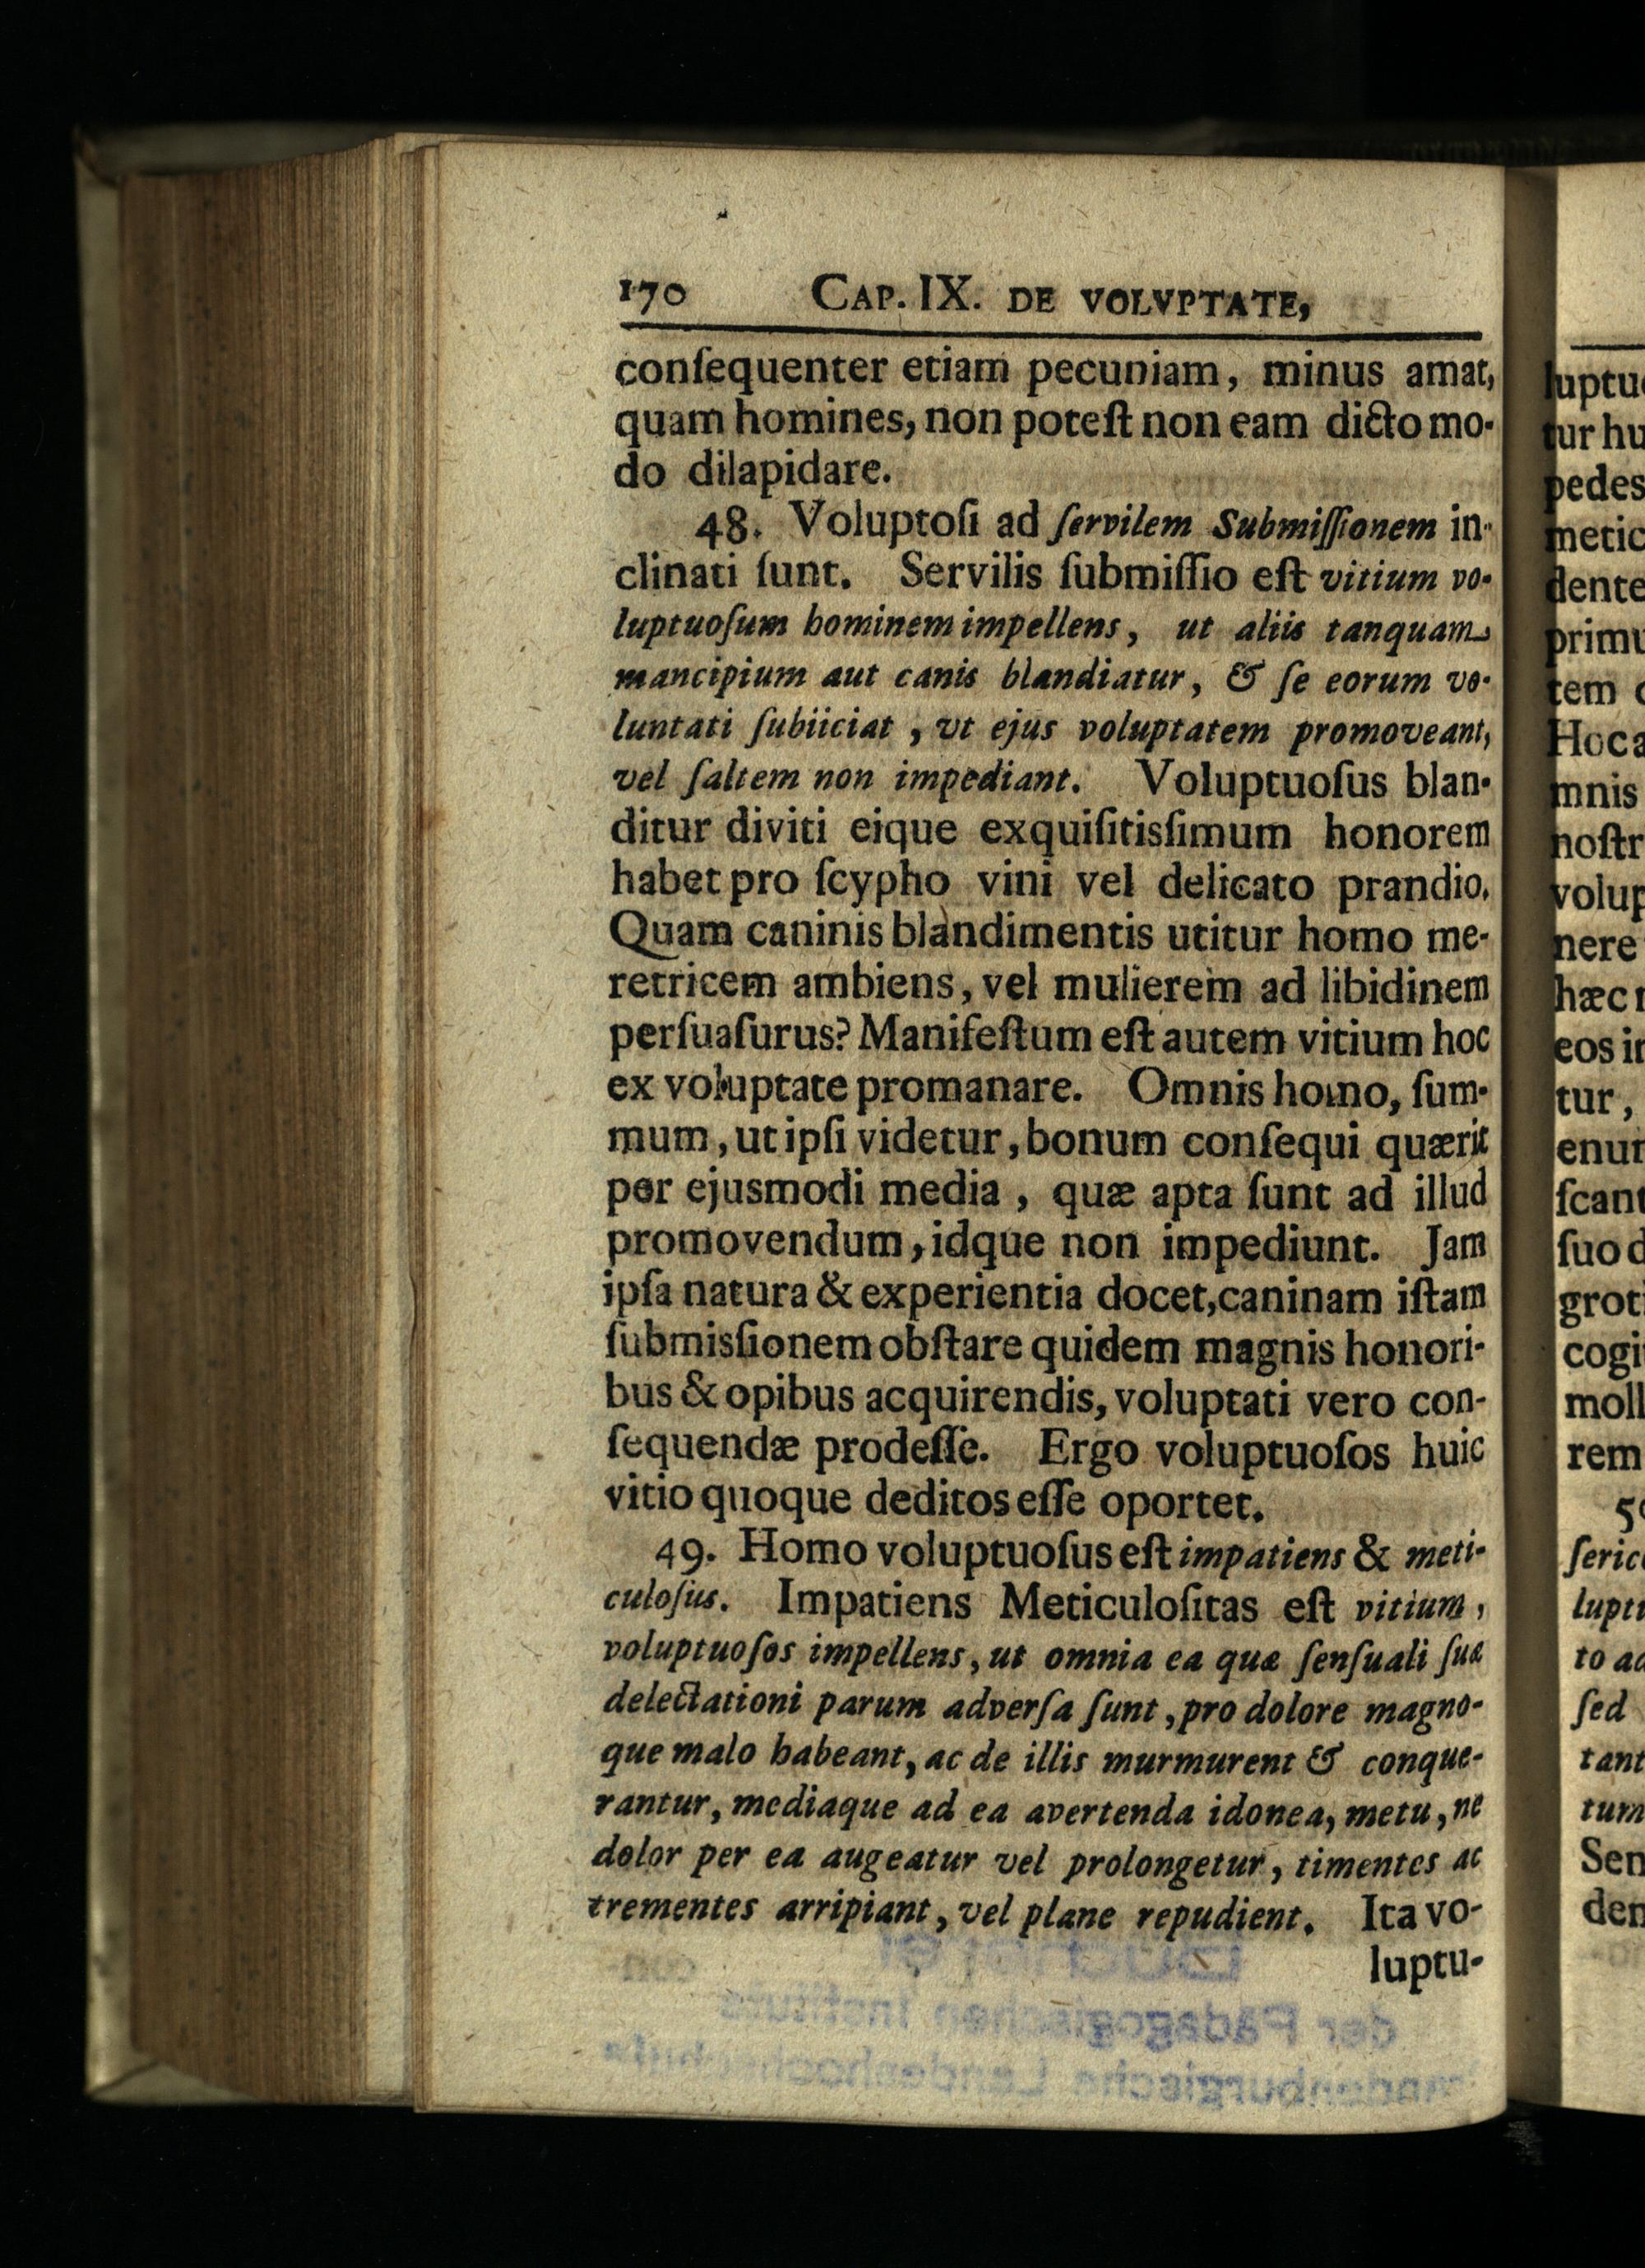 170 CAP. IX. DE VOLVPTATE,
conſequenter etiam pecuniam, minus amat,
quam homines, non poteſt non eam dicto mo-
do dilapidare.
48. Voluptoſi ad ſervilem Submiſſionem in-
clinati ſunt. Servilis ſubmiſſio eſt vitium vo-
luptuoſum hominem impellens, ut aliis tanquam
mancipium aut canis blandiatur, & ſe eorum vo-
luntati ſubiiciat, vt ejus voluptatem promoveant,
vel ſaltem non impediant. Voluptuoſus blan-
ditur diviti eique exquiſitisſimum honorem
habet pro ſcypho vini vel delicato prandio.
Quam caninis blandimentis utitur homo me-
retricem ambiens, vel mulierem ad libidinem
perſuaſurus? Manifeſtum eſt autem vitium hoc
ex voluptate promanare. Omnis homo, ſum-
mum, ut ipſi videtur, bonum conſequi quærit
per ejusmodi media, quæ apta ſunt ad illud
promovendum, idque non impediunt. Jam
ipſa natura & experientia docet, caninam iſtam
ſubmisſionem obſtare quidem magnis honori-
bus & opibus acquirendis, voluptati vero con-
ſequendæ prodeſſe. Ergo voluptuoſos huic
vitio quoque deditos eſſe oportet.
49. Homo voluptuoſus eſt impatiens & meti-
culoſus. Impatiens Meticuloſitas eſt vitium,
voluptuoſos impellens, ut omnia ea quæ ſenſuali ſuæ
delectationi parum adverſa ſunt, pro dolore magno-
que malo habeant, ac de illis murmurent & conque-
rantur, mediaque ad ea avertenda idonea, metu, ne
dolor per ea augeatur vel prolongetur, timentes ac
trementes arripiant, vel plane repudient. Ita vo-
luptu-
luptu
tur hu
pedes
metic
dente
primu
tem
Hoc a
mnis
noſtr
volup
nere
hæc
eos in
tur,
enun
ſcant
ſuo d
grot
cogi
moll
rem
ſeric
luptu
to ad
ſed
tant
tum
Sen
den